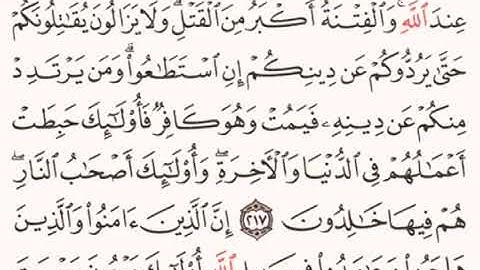 عِندَ ٱللَّهِۚ وَٱلۡفِتۡنَةُ أَكۡبَرُ مِنَ ٱلۡقَتۡلِۗ وَلَا يَزَالُونَ يُقَٰتِلُونَكُمۡ
حَتَّىٰ يَرُدُّوكُمۡ عَن دِينِكُمۡ إِنِ ٱسۡتَطَٰعُواْۚ وَمَن يَرۡتَدِدۡ
مِنكُمۡ عَن دِينِهِۦ فَيَمُتۡ وَهُوَ كَافِرٞ فَأُوْلَٰٓئِكَ حَبِطَتۡ
أَعۡمَٰلُهُمۡ فِي ٱلدُّنۡيَا وَٱلۡأٓخِرَةِۖ وَأُوْلَٰٓئِكَ أَصۡحَٰبُ ٱلنَّارِۖ
هُمۡ فِيهَا خَٰلِدُونَ ٢١٧ إِنَّ ٱلَّذِينَ ءَامَنُواْ وَٱلَّذِينَ
ٱللَّهِ أُوْلَٰٓئِكَ